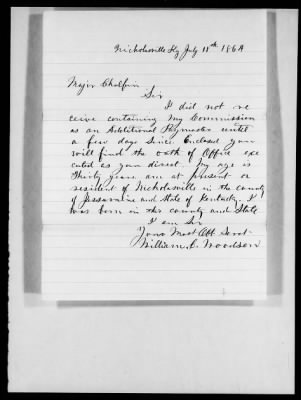 Nicholasville Ky July 11th 1864
Major Chalfin
Sir
I did not re
ceive containing My Commission
as an Additional Paymaster until
a few days since. Enclosed you
will find the oath of Office exe
cuted as you direct. My age is
thirty years. am at present a
resident of Nicholasville in the county
of Jessamine and State of Kentucky. I
was born in this county and State
I am Sir
Your Most Obt Servt
William C. Woodson